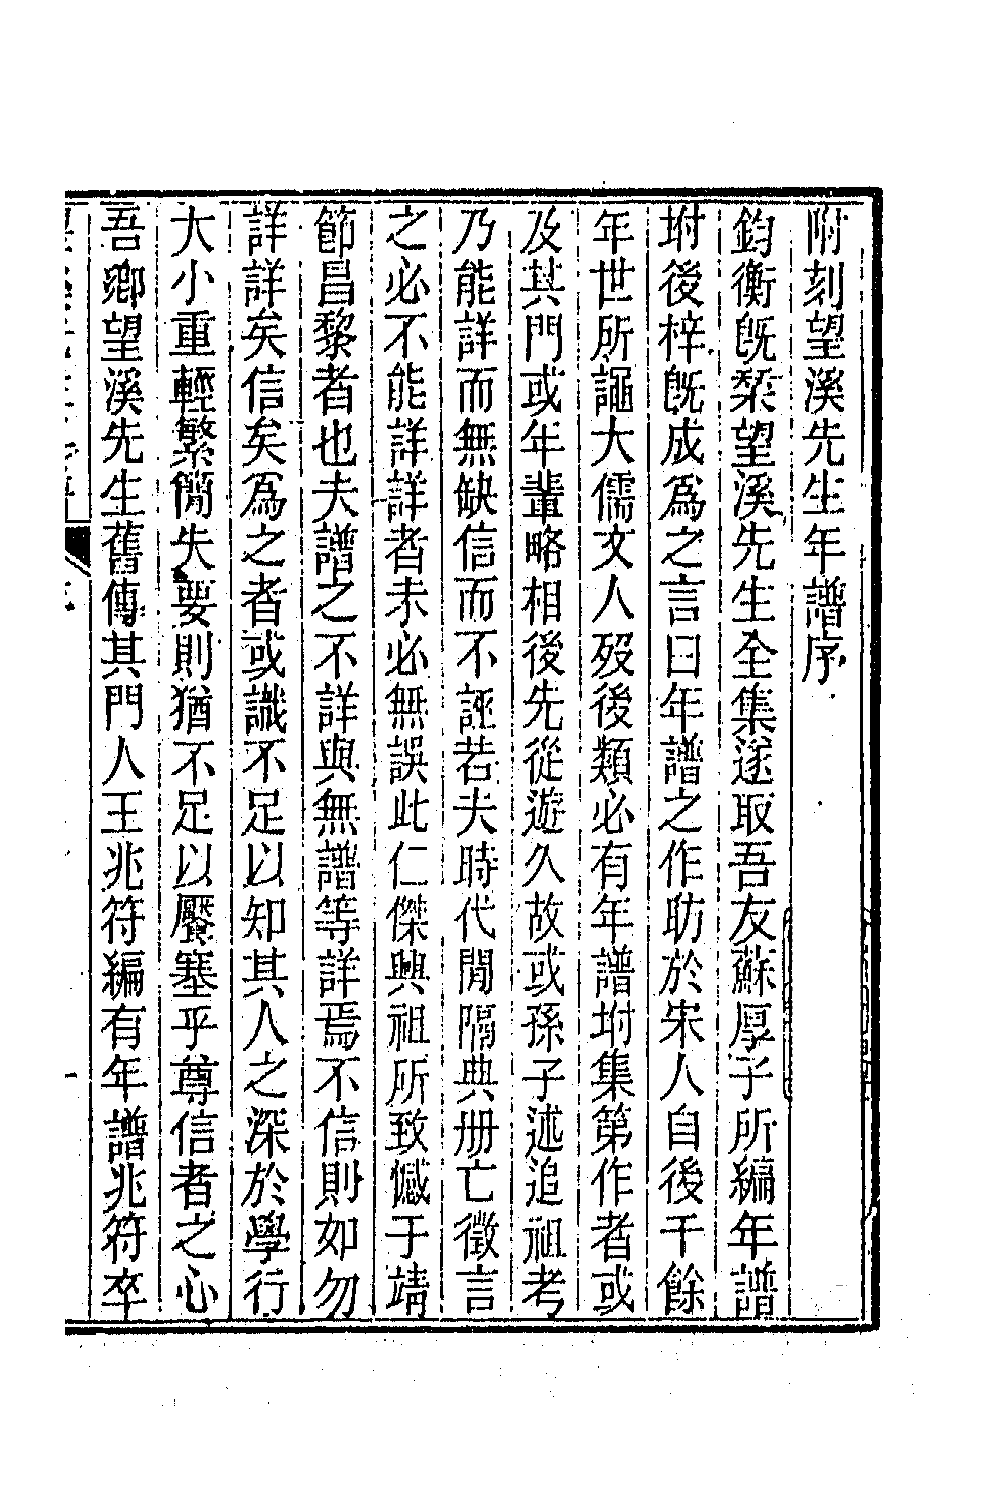 附刻望溪先生年譜序
鈞衡旣槧望溪先生全集遂取吾友蘇厚子所編年譜
坿後梓旣成爲之言曰年譜之作昉於宋人自後千餘
年世所謳大儒文人歿後類必有年譜坿集第作者或
及其門或年輩略相後先從遊久故或孫子述追祖考
乃能詳而無缺信而不誣若夫時代閒隔典册亡徵言
之必不能詳詳者未必無誤此仁傑興祖所致憾于靖
節昌黎者也夫譜之不詳與無譜等詳焉不信則如勿
詳詳矣信矣爲之者或識不足以知其人之深於學行
大小重輕繁簡失要則猶不足以饜塞乎尊信者之心
吾鄉望溪先生舊傳其門人王兆符編有年譜兆符卒